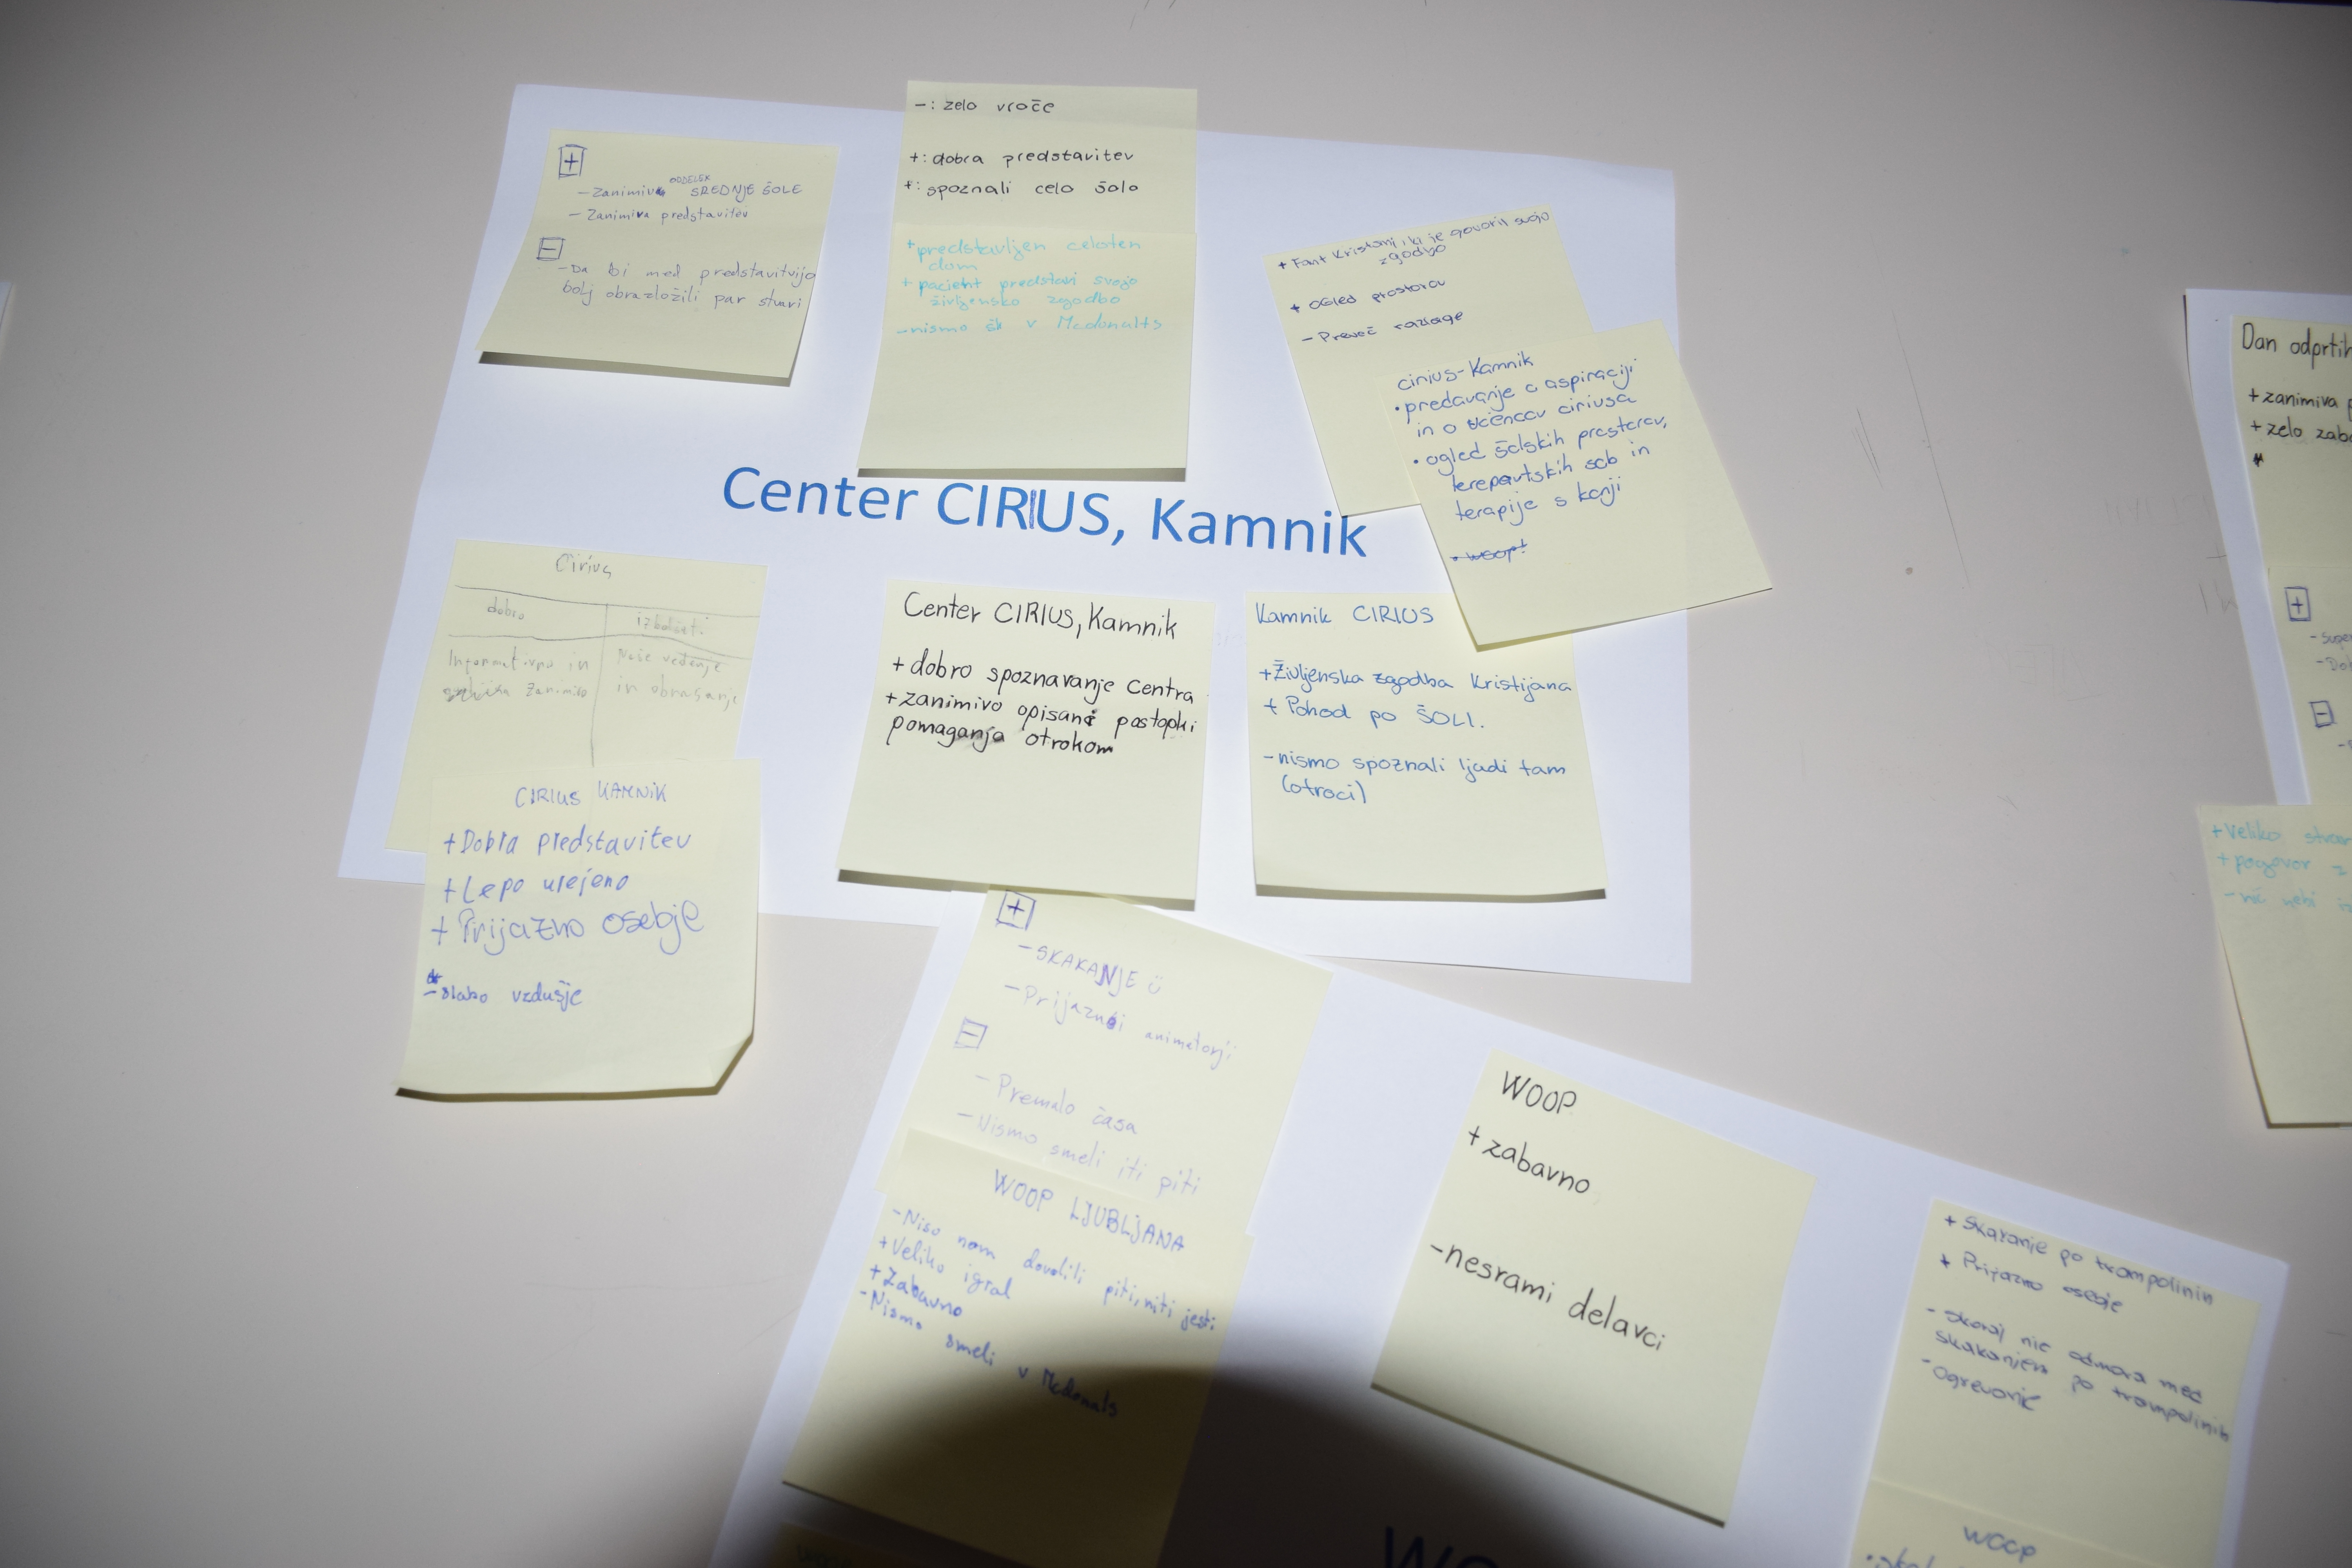 +
ODDELEK
- Zanimiv SREDNJE ŠOLE
- Zanimiva predstavitev
-
- Da bi med predstavitvijo
bolj obrazložili par stvari
-: zelo vroče
+: dobra predstavitev
+: spoznali celo šolo
+ predstavljen celoten
dom
+ pacient predstavi svojo
življensko zgodbo
- nismo šli v Mcdonalts
+ Fant Kristjan, ki je govoril svojo
zgodbo
+ Ogled prostorov
- Preveč razlage
cirius-Kamnik
• predavanje o aspiraciji
in o učencav ciriusa
• ogled šolskih prostorov,
terepavtskih sob in
terapije s konji
• woop!
Center CIRIUS, Kamnik
Cirius
dobro
izboljšati
Informativno in
zanimivo
Naše vedenje
in obnašanje
CIRIUS KAMNIK
+ Dobra predstavitev
+ Lepo urejeno
+ Prijazno osebje
- slabo vzdušje
Center CIRIUS, Kamnik
+ dobro spoznavanje Centra
+ zanimivo opisani postopki
pomaganja otrokom
Kamnik CIRIUS
+ Življenska zgodba Kristijana
+ Pohod po ŠOLI.
- nismo spoznali ljudi tam
(otroci)
+
- SKAKANJE ü
- Prijazni animatorji
-
- Premalo časa
- Nismo smeli iti piti
WOOP LJUBLJANA
- Niso nam dovolili piti, niti jesti
+ Veliko igral
+ Zabavno
- Nismo smeli v Mcdonats
WOOP
+ zabavno
- nesrami delavci
+ Skakanje po trampolinih
+ Prijazno osebje
- Skoraj nič odmora med
skakanjem po trampolinih
- Ogrevanje
WOOP
Dan odprtih
+ zanimiva
+ zelo
+
-
+ Veliko
+ pogovor z